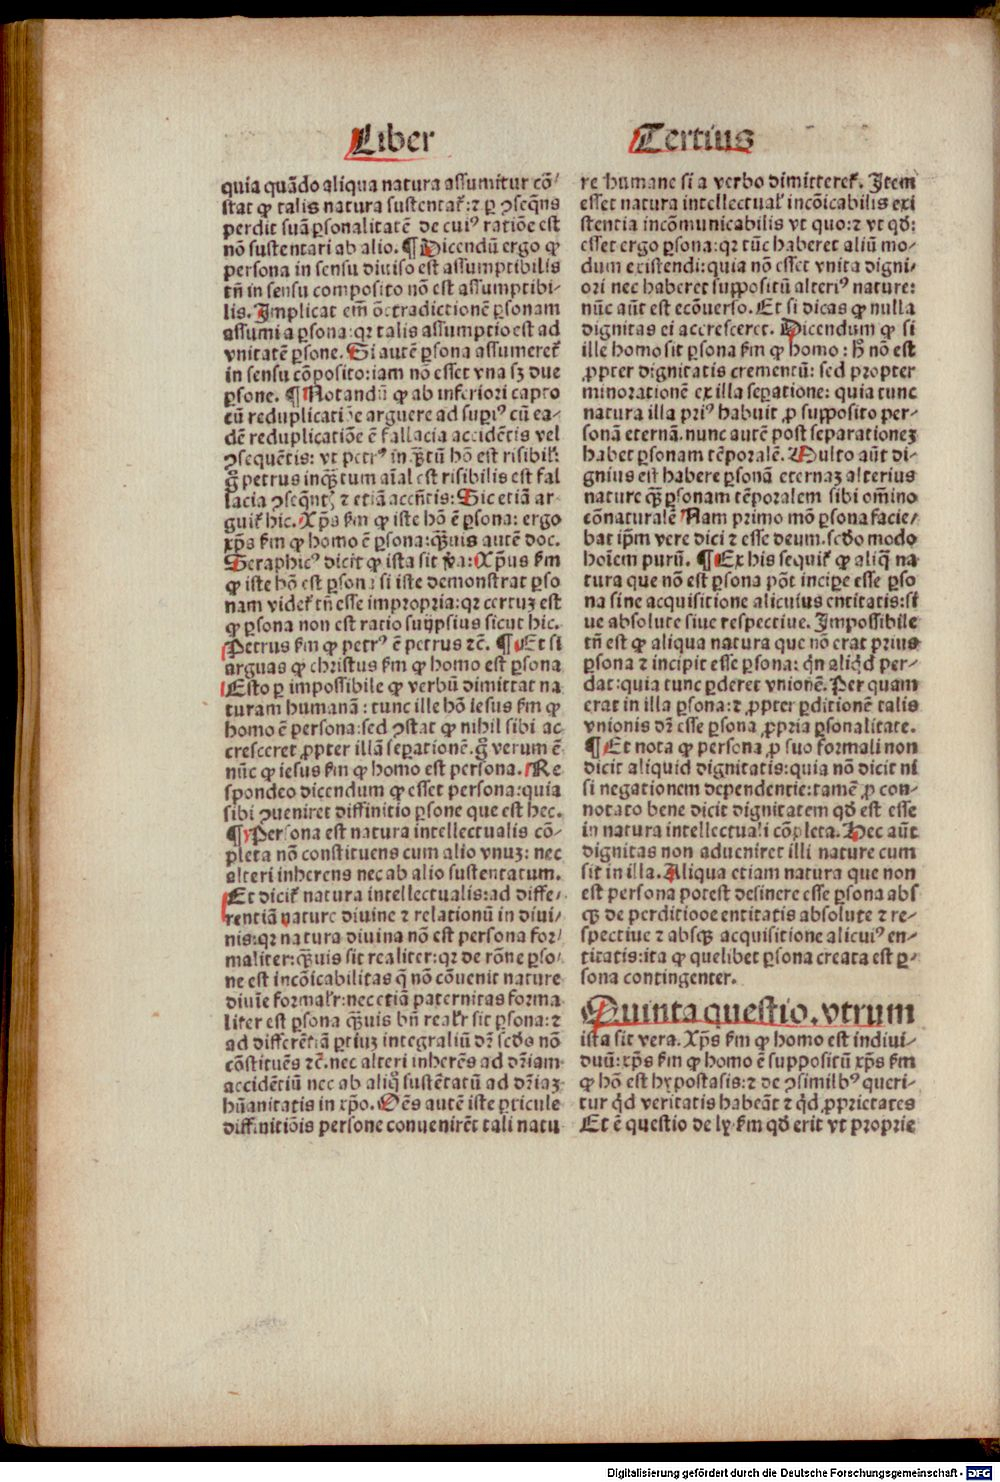 Liber
Tertius
quia quādo aliqua natura assumitur cō-
stat ꝙ talis natura sustentať: ⁊ ꝑ ↄseq̄ns
perdit suā ꝑsonalitatē de cui⁹ ratiōe est
nō sustentari ab alio. ¶ Dicendū ergo ꝙ
persona in sensu diuiso est assumptibilis
tn̄ in sensu composito nō est assumptibi-
lis. Implicat em̄ ↄtradictionē ꝑsonam
assumi a ꝑsona: qꝛ talis assumptio est ad
vnitatē ꝑsone. Si autē ꝑsona assumereť
in sensu cōposito: iam nō esset vna sꝫ due
ꝑsone. ¶ Notandū ꝙ ab inferiori capto
cū reduplicatiōe arguere ad supi⁹ cū ea-
dē reduplicatiōe ē fallacia accidētis vel
ↄsequētis: vt petr⁹ inq̄ꝫtū hō est risibiľ:
gͦ petrus inqꝫtum aīal est risibilis est fal
lacia ↄseq̄ntꝭ ⁊ etiā accn̄tis: Sic etiā ar-
guiť hic. Xp̄s ẜm ꝙ iste hō ē ꝑsona: ergo
xp̄s ẜm ꝙ homo ē ꝑsona: q̄ꝫuis autē doc.
Seraphic⁹ dicit ꝙ ista sit ṽa: Xp̄us ẜm
ꝙ iste hō est ꝑsona si iste demonstrat ꝑso
nam videť tn̄ esse impropria: qꝛ certuꝫ est
ꝙ ꝑsona non est ratio suiipsius sicut hic.
Petrus ẜm ꝙ petr⁹ ē petrus ⁊c̄. ¶ Et si
arguas ꝙ christus ẜm ꝙ homo est ꝑsona
Esto ꝑ impossibile ꝙ verbū dimittat na
turam humanā: tunc ille hō iesus ẜm ꝙ
homo ē persona: sed ↄstat ꝙ nihil sibi ac
cresceret ꝓpter illā seꝑationē. gͦ verum ē
nūc ꝙ iesus ẜm ꝙ homo est persona. Re
spondeo dicendum ꝙ esset persona: quia
sibi ↄueniret diffinitio ꝑsone que est hec.
¶ Persona est natura intellectualis cō-
pleta nō constituens cum alio vnuꝫ: nec
alteri inherens nec ab alio sustentatum.
Et diciť natura intellectualis: ad diffe-
rentiā nature diuine ⁊ relationū in diui-
nis: qꝛ natura diuina nō est persona for-
maliter: q̄ꝫuis sit realiter: qꝛ de rōne ꝑso-
ne est incōicabilitas q̄ nō cōuenit nature
diuīe formaľr: nec etiā paternitas forma
liter est ꝑsona q̄ꝫuis bn̄ reaľr sit ꝑsona: ⁊
ad differētiā ꝑtiuꝫ integraliū dꝛ̄ scđo nō
cōstituēs ⁊c̄. nec alteri inherēs ad dr̄iam
accidētiū nec ab aliq̊ sustētatū ad dr̄iaꝫ
hūanitatis in xp̄o. Oēs autē iste ꝑticule
diffinitiōis persone conuenirēt tali natu
re humane si a verbo dimittereť. Item
esset natura intellectuaľ incōicabilis exi
stentia incōmunicabilis vt quo: ⁊ vt qđ:
esset ergo ꝑsona: qꝛ tūc haberet aliū mo-
dum existendi: quia nō esset vnita digni-
ori nec haberet suppositū alteri⁹ nature:
nūc aūt est ecōuerso. Et si dicas ꝙ nulla
dignitas ei accresceret. Dicendum ꝙ si
ille homo sit ꝑsona ẜm ꝙ homo: h̄ nō est
ꝓpter dignitatis crementū: sed propter
minorationē ex illa seꝑatione: quia tunc
natura illa pri⁹ habuit ꝓ supposito per-
sonā eternā. nunc autē post separationeꝫ
habet ꝑsonam tēporalē. Multo aūt di-
gnius est habere ꝑsonā eternaꝫ alterius
nature q̄ꝫ ꝑsonam tēporalem sibi om̄ino
cōnaturalē Nam primo mō ꝑsona facie-
bat ip̄m vere dici ⁊ esse deum. scđo modo
hoīem purū. ¶ Ex his sequiť ꝙ aliq̄ na
tura que nō est ꝑsona pōt inciꝑe esse ꝑso
na sine acquisitione alicuius entitatis: si
ue absolute siue respectiue. Impossibile
tn̄ est ꝙ aliqua natura que nō erat prius
ꝑsona ⁊ incipit esse ꝑsona: qn̄ aliqđ per-
dat: quia tunc ꝑderet vnionē. Per quam
erat in illa ꝑsona: ⁊ ꝓpter ꝑditionē talis
vnionis dꝛ̄ esse ꝑsona ꝓpria ꝑsonalitate.
¶ Et nota ꝙ persona ꝓ suo formali non
dicit aliquid dignitatis: quia nō dicit ni
si negationem dependentie: tamē ꝓ con-
notato bene dicit dignitatem qđ est esse
in natura intellectuali cōpleta. Hec aūt
dignitas non adueniret illi nature cum
sit in illa. Aliqua etiam natura que non
est persona potest desinere esse ꝑsona abs
qꝫ de perditiooe entitatis absolute ⁊ re-
spectiue ⁊ absqꝫ acquisitione alicui⁹ en-
titatis: ita ꝙ quelibet ꝑsona creata est ꝑ-
sona contingenter.
Quinta questio. vtrum
ista sit vera. Xp̄s ẜm ꝙ homo est indiui-
duū: xp̄s ẜm ꝙ homo ē suppositū xp̄s ẜm
ꝙ hō est hypostasis: ⁊ de ↄsimilib⁹ queri-
tur qđ veritatis habeāt ⁊ qđ ꝓprietates
Et ē questio de ly ẜm qđ erit vt proprie
Digitalisierung gefördert durch die Deutsche Forschungsgemeinschaft - DFG